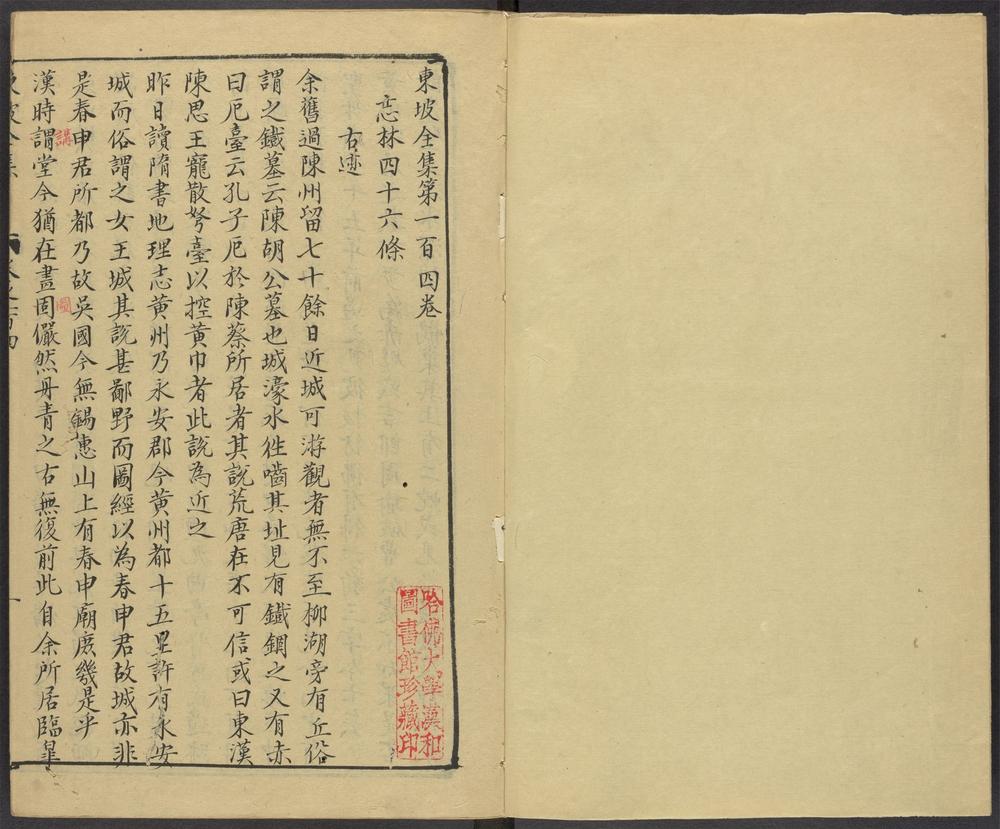 東坡全集第一百四卷
志林四十六條
古迹
余舊過陳州留七十餘日近城可游觀者無不至柳湖旁有丘俗
謂之鐵墓云陳胡公墓也城濠水徃嚙其址見有鐵錮之又有赤
曰厄臺云孔子厄於陳蔡所居者其說荒唐在不可信或曰東漢
陳思王寵散弩臺以控黃巾者此說為近之
昨日讀隋書地理志黃州乃永安郡今黃州都十五里許有永安
城而俗謂之女王城其說甚鄙野而圖經以為春申君故城亦非
是春申君所都乃故吳國今無錫惠山上有春申廟庶幾是乎
漢時謂堂今猶在畫固儼然丹青之古無復前此自余所居臨皐
講
圖
哈佛大學漢和
圖書館珍藏印